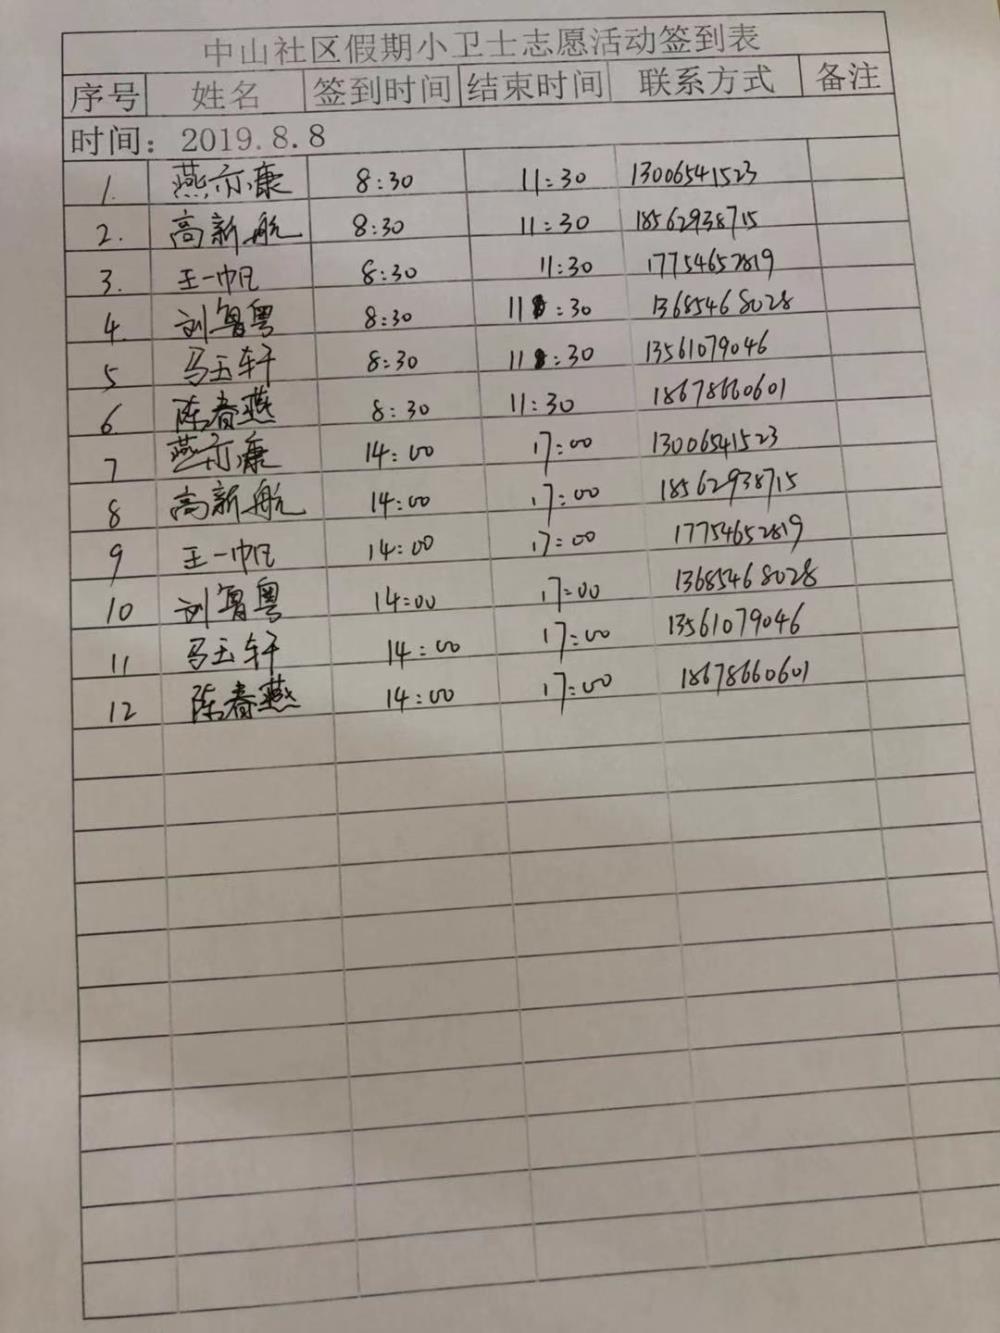 中山社区假期小卫士志愿活动签到表
序号 姓名 签到时间 结束时间 联系方式 备注
时间：2019.8.8
1. 燕亦康 8:30 11:30 13006541523
2. 高新航 8:30 11:30 18562938715
3. 王一帆 8:30 11:30 17754652819
4. 刘鲁粤 8:30 11:30 13685468028
5 马玉轩 8:30 11:30 13561079046
6. 陈春燕 8:30 11:30 18678660601
7 燕亦康 14:00 17:00 13006541523
8 高新航 14:00 17:00 18562938715
9 王一帆 14:00 17:00 17754652819
10 刘鲁粤 14:00 17:00 13685468028
11 马玉轩 14:00 17:00 13561079046
12 陈春燕 14:00 17:00 18678660601